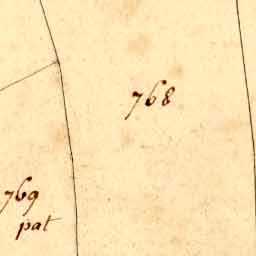 768
769
pat